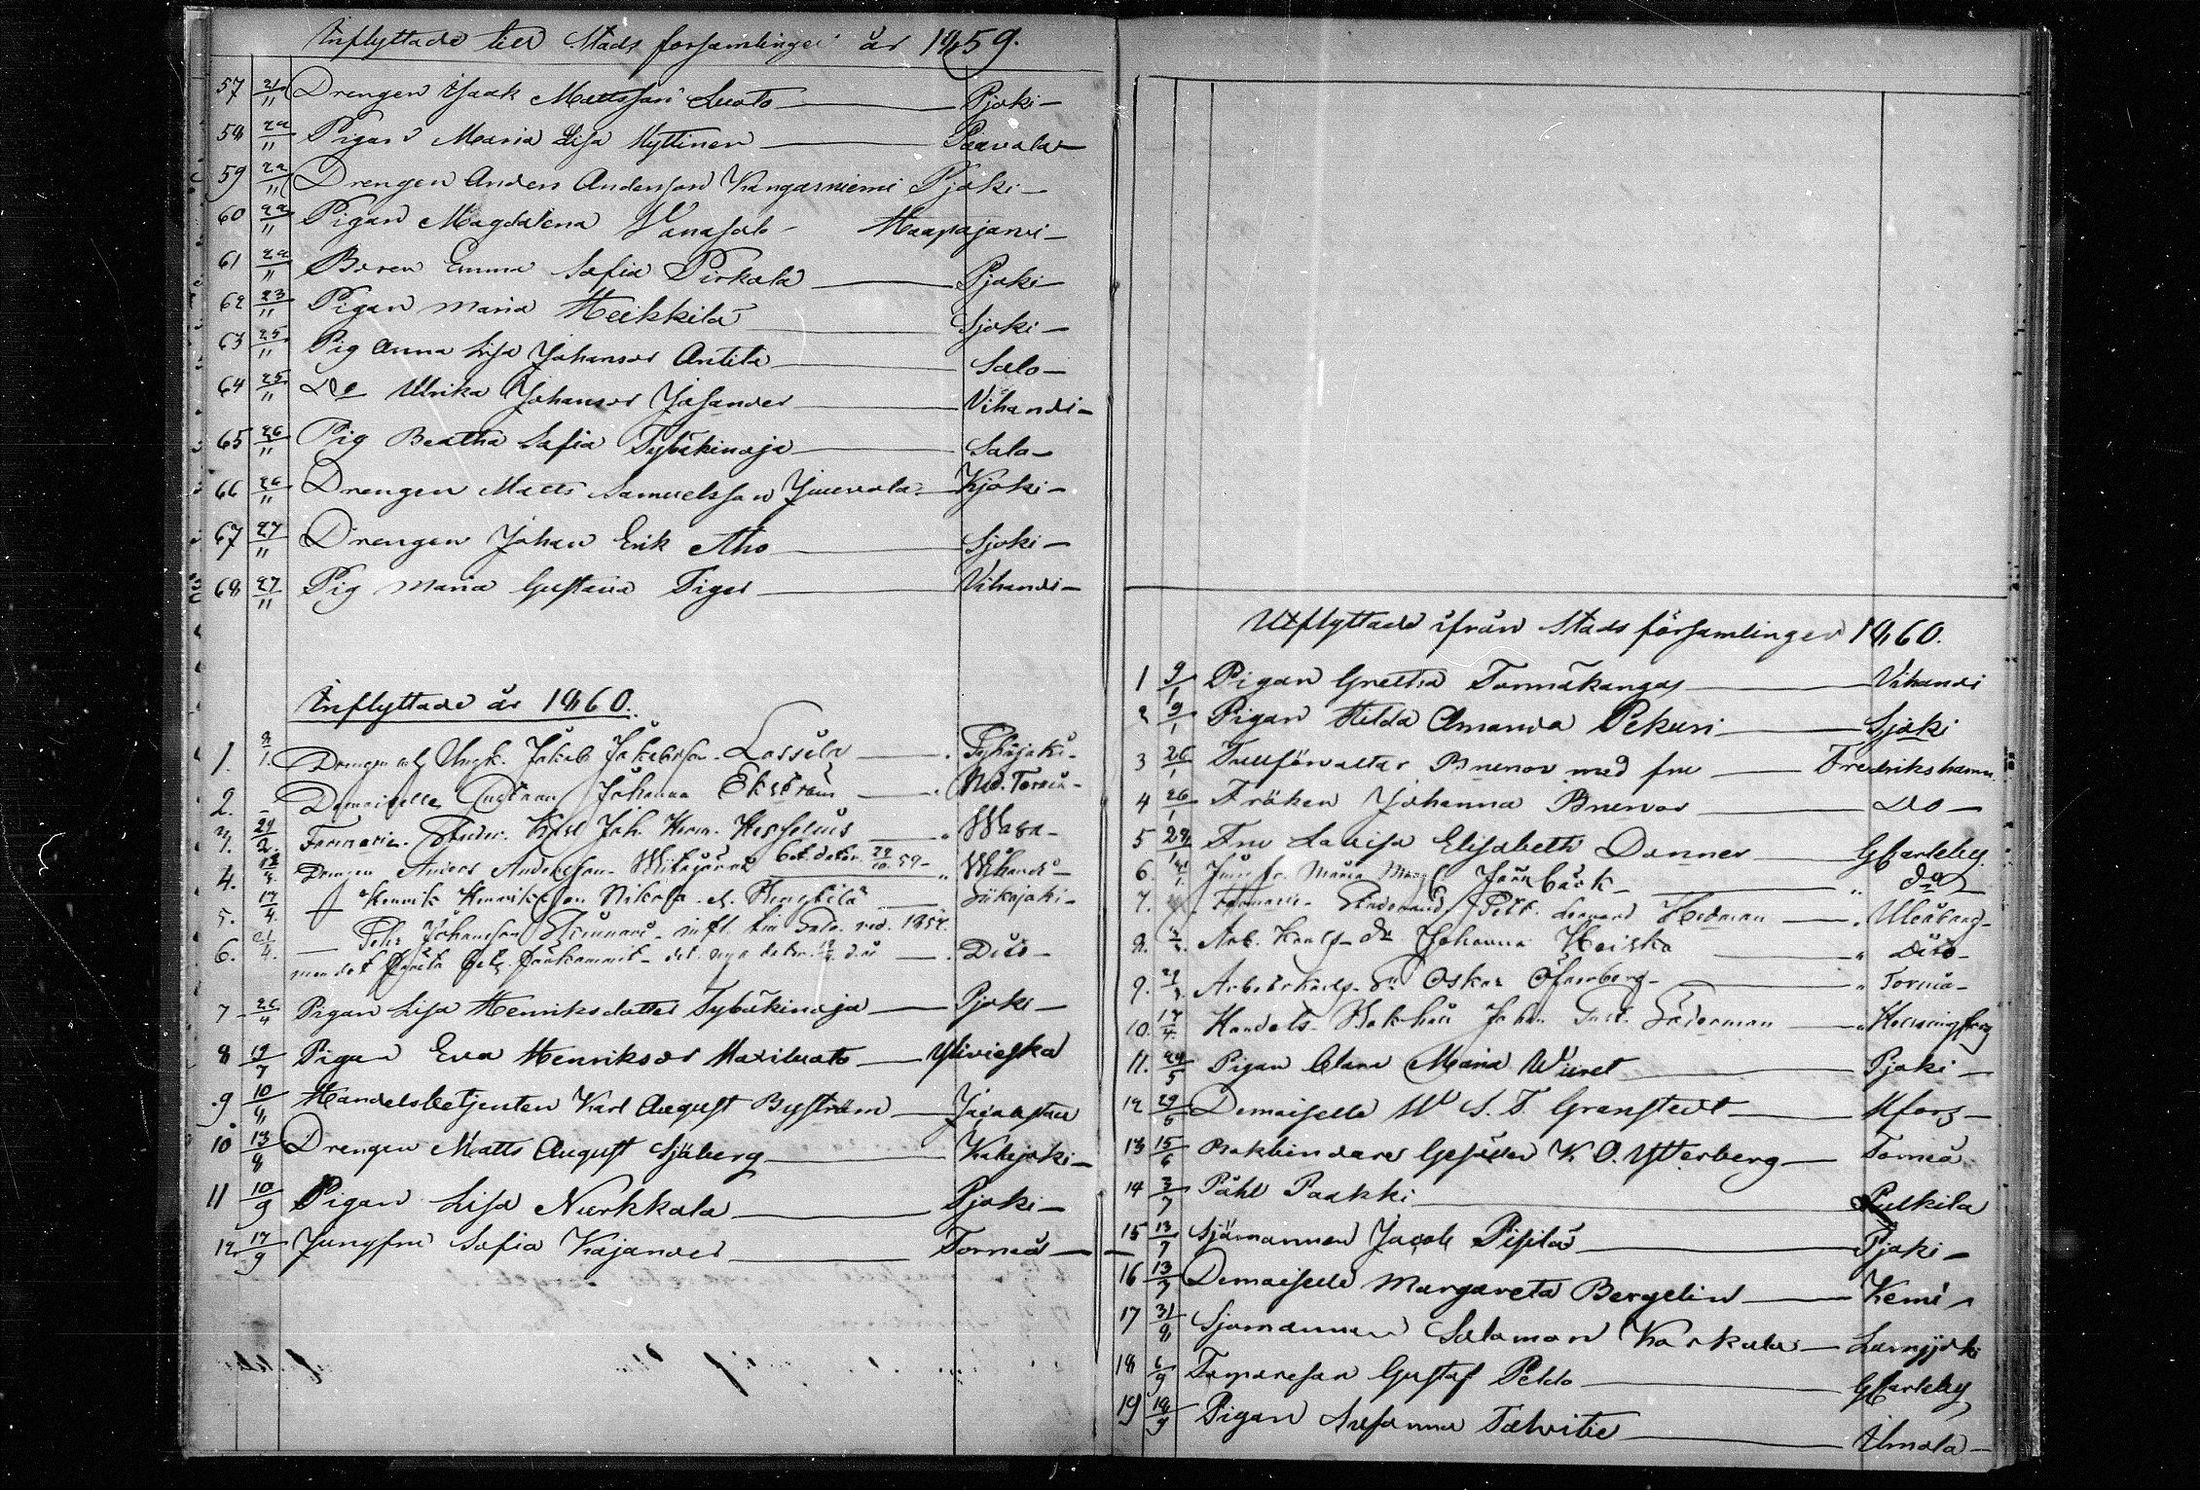 Inflyttade till Stads församlingen år 1859.
57 21/11 Drengen Isaak Mattsson Luoto — Pjoki —
58 22/11 Pigan Maria Lisa Hyttinen — Paavola —
59 22/11 Drengen Anders Andersson Kangasniemi Pjoki —
60 22/11 Pigan Magdalena Vanasalo — Haapajärvi —
61 22/11 Emma Sofia Pirkola — Pjoki —
62 23/11 Pigan Maria Heikkilä — Sjoki —
63 25/11 Pig Anna Lisa Johansdr Antila — Salo —
64 25/11 Do Ulrika Johansdr Josander — Vihandi —
65 26/11 Pig Beatha Sofia Sybäkinoja — Salo —
66 26/11 Drengen Matts Samuelsson Junevola — Kjoki —
67 27/11 Drengen Johan Erik Aho — Sjoki —
68 27/11 Pig Maria Gustava Tiger — Vihandi —
Inflyttade år 1860.
1. Drengen Jakob Jakobsson Lassila —
2. Demoiselle Johanna Ekström — Ned. Torneå —
3. Farmacie Studer. Karl Joh. Herm. Hesselius — Wasa —
4. Drengen Anders Andersson — Wihandi —
5. 17/4. Henrik Henriksson — Siikajoki —
6. 21/4. Pehr Johansson
— Dito —
7 26/4 Pigan Lisa Henriksdotter Sybäkinoja — Pjoki —
8 19/7 Pigan Eva Henriksdr Haviluoto — Ylivieska
9 10/8 Handelsbetjenten Karl August Byström — Jacobstad
10 13/8 Drengen Matts August Sjöberg — Kalajoki —
11 10/9 Pigan Lisa Nurkkala — Pjoki —
12 17/9 Jungfru Sofia Kajander — Torneå —
Utflyttade ifrån Stads församlingen 1860.
1 9/1 Pigan Gretha Tormäkangas — Vihandi
2 9/1 Pigan Hilda Amanda Pekuri — Sjoki
3 26/1 Tullförvaltar Brunow med fru — Fredrikshamn
4 26/1 Fröken Johanna Brunow — Do —
5 Fru Lovisa Elisabeth Donner — Gkarleby
6. Maria — Do
7. Farmacie Studerand. Petr. Leonard Hedman — Uleåborg —
8. Johanna Heiska — Dito —
9. Oskar Öfverberg — Torneå —
10. 17/4. Handels Bokhåll. Johan Gust. Söderman — Helsingfors
11. 24/5 Pigan Clara Maria Wiiret — Pjoki —
12 29/5 Demoiselle W S. F. Granstedt — Hfors —
13 15/6 Bokbindare Gesällen K. O. Ytterberg — Torneå
14 3/7 Påhl Paakki — Pulkila
15 13/7 Sjömannen Jacob Pipilä — Pjoki —
16 13/7 Demoiselle Margareta Bergelin — Kemi —
17 31/8 Sjömannen Salomon Korkala — Limmijoki
18 6/9 Gustaf Peldo — Gkarleby
19 18/9 Pigan Susanna Talvitie — Ilmola —